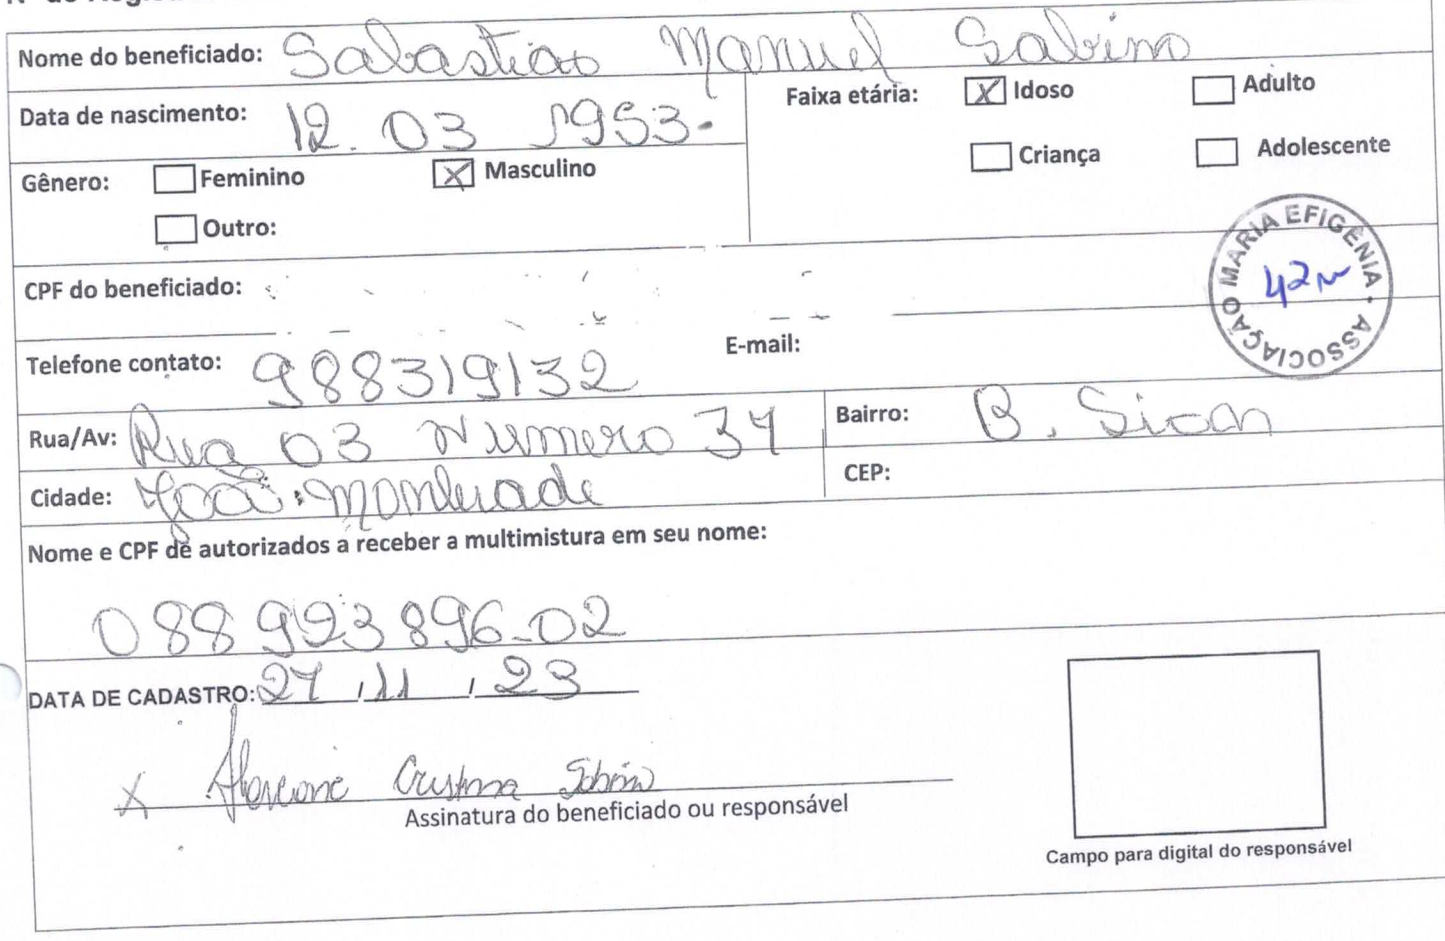 Nome do beneficiado: Sabastiao Manuel Sabino
Data de nascimento: 12. 03 1953.
Faixa etária: [X] Idoso [ ] Adulto
[ ] Criança [ ] Adolescente
Gênero: [ ] Feminino [X] Masculino
[ ] Outro:
CPF do beneficiado:
ASSOCIAÇÃO MARIA EFIGÊNIA
Telefone contato: 988319132 E-mail:
Rua/Av: Rua 03 Numero 34 Bairro: B. Sion
Cidade: João Monlevade CEP:
Nome e CPF de autorizados a receber a multimistura em seu nome:
088 993 896-02
DATA DE CADASTRO: 27 / 11 / 23
X Cristina Sabino
Assinatura do beneficiado ou responsável
Campo para digital do responsável